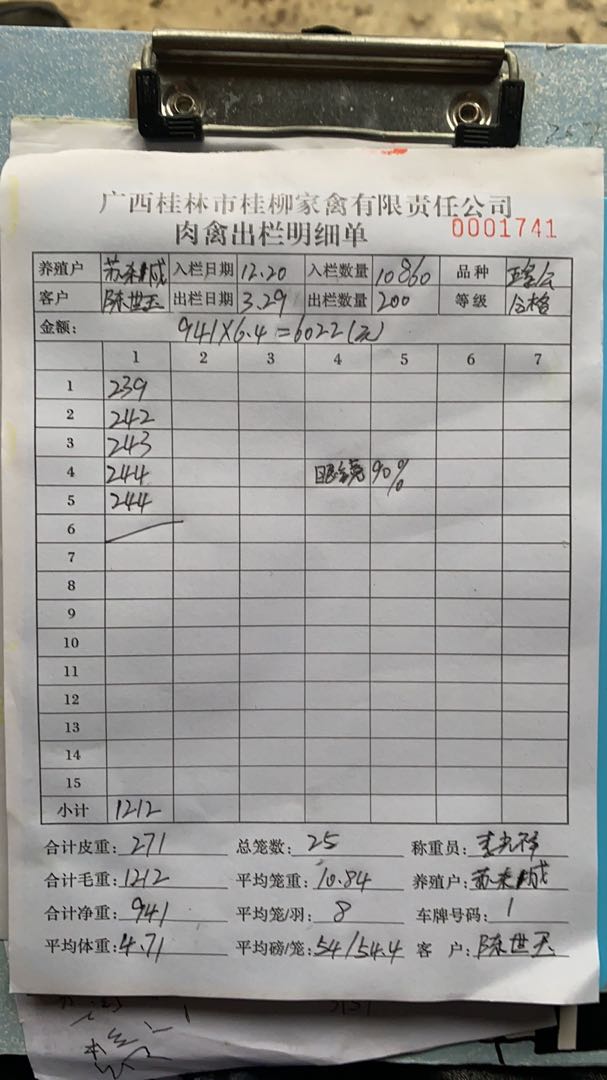 广西桂林市桂柳家禽有限责任公司
肉禽出栏明细单 0001741
养殖户 苏 成 入栏日期 12.20 入栏数量 10860 品种
客户 陈世玉 出栏日期 3.29 出栏数量 200 等级 合格
金额: 941×6.4=6022(元)
1 2 3 4 5 6 7
1 239
2 242
3 243
4 244 眼镜 90%
5 244
6
7
8
9
10
11
12
13
14
15
小计 1212
合计皮重: 271 总笼数: 25 称重员:
合计毛重: 1212 平均笼重: 10.84 养殖户: 苏 成
合计净重: 941 平均笼/羽: 8 车牌号码: 1
平均体重: 4.71 平均磅/笼: 54/54.4 客 户: 陈世玉